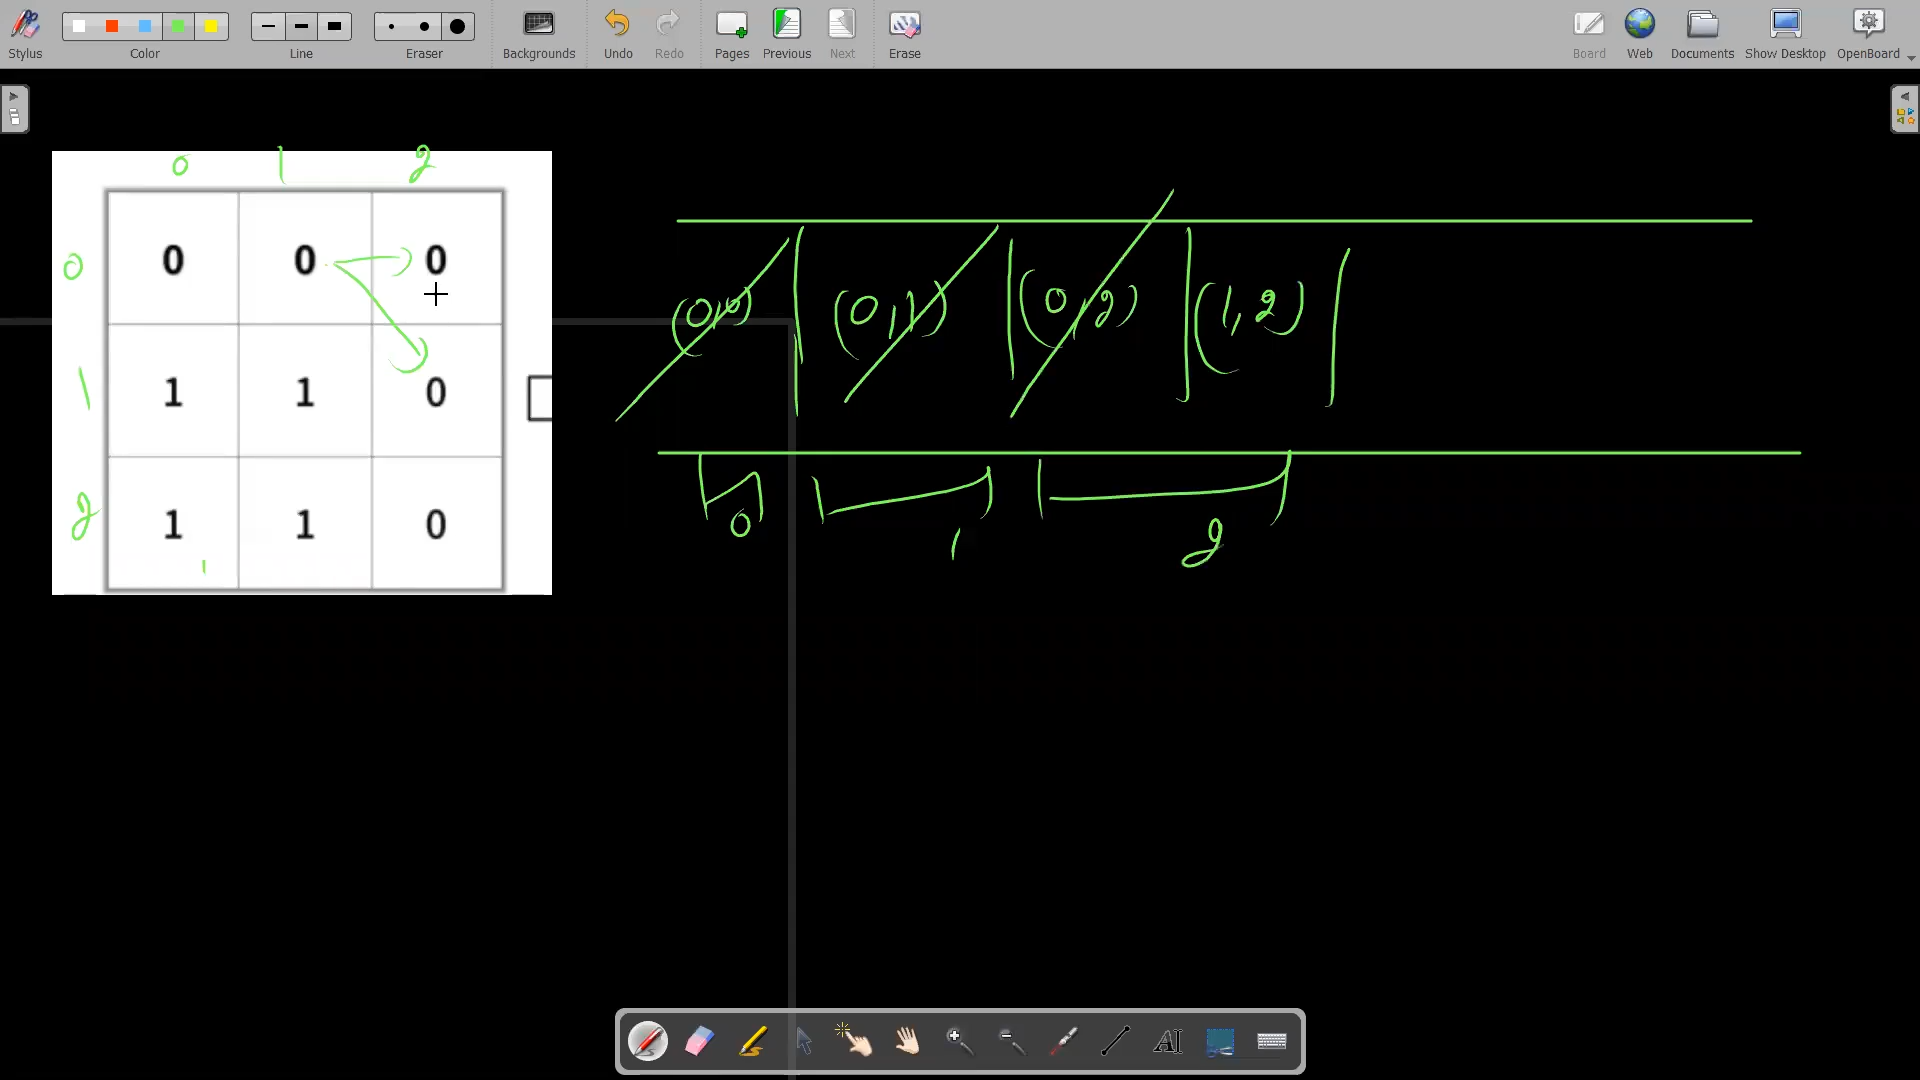 Stylus Color Line Eraser Backgrounds Undo Redo Pages Previous Next Erase Board Web Documents Show Desktop OpenBoard
0 1 2
0 0 0 0
1 1 1 0
2 1 1 0
(0,0) (0,1) (0,2) (1,2)
0 1 2
AI